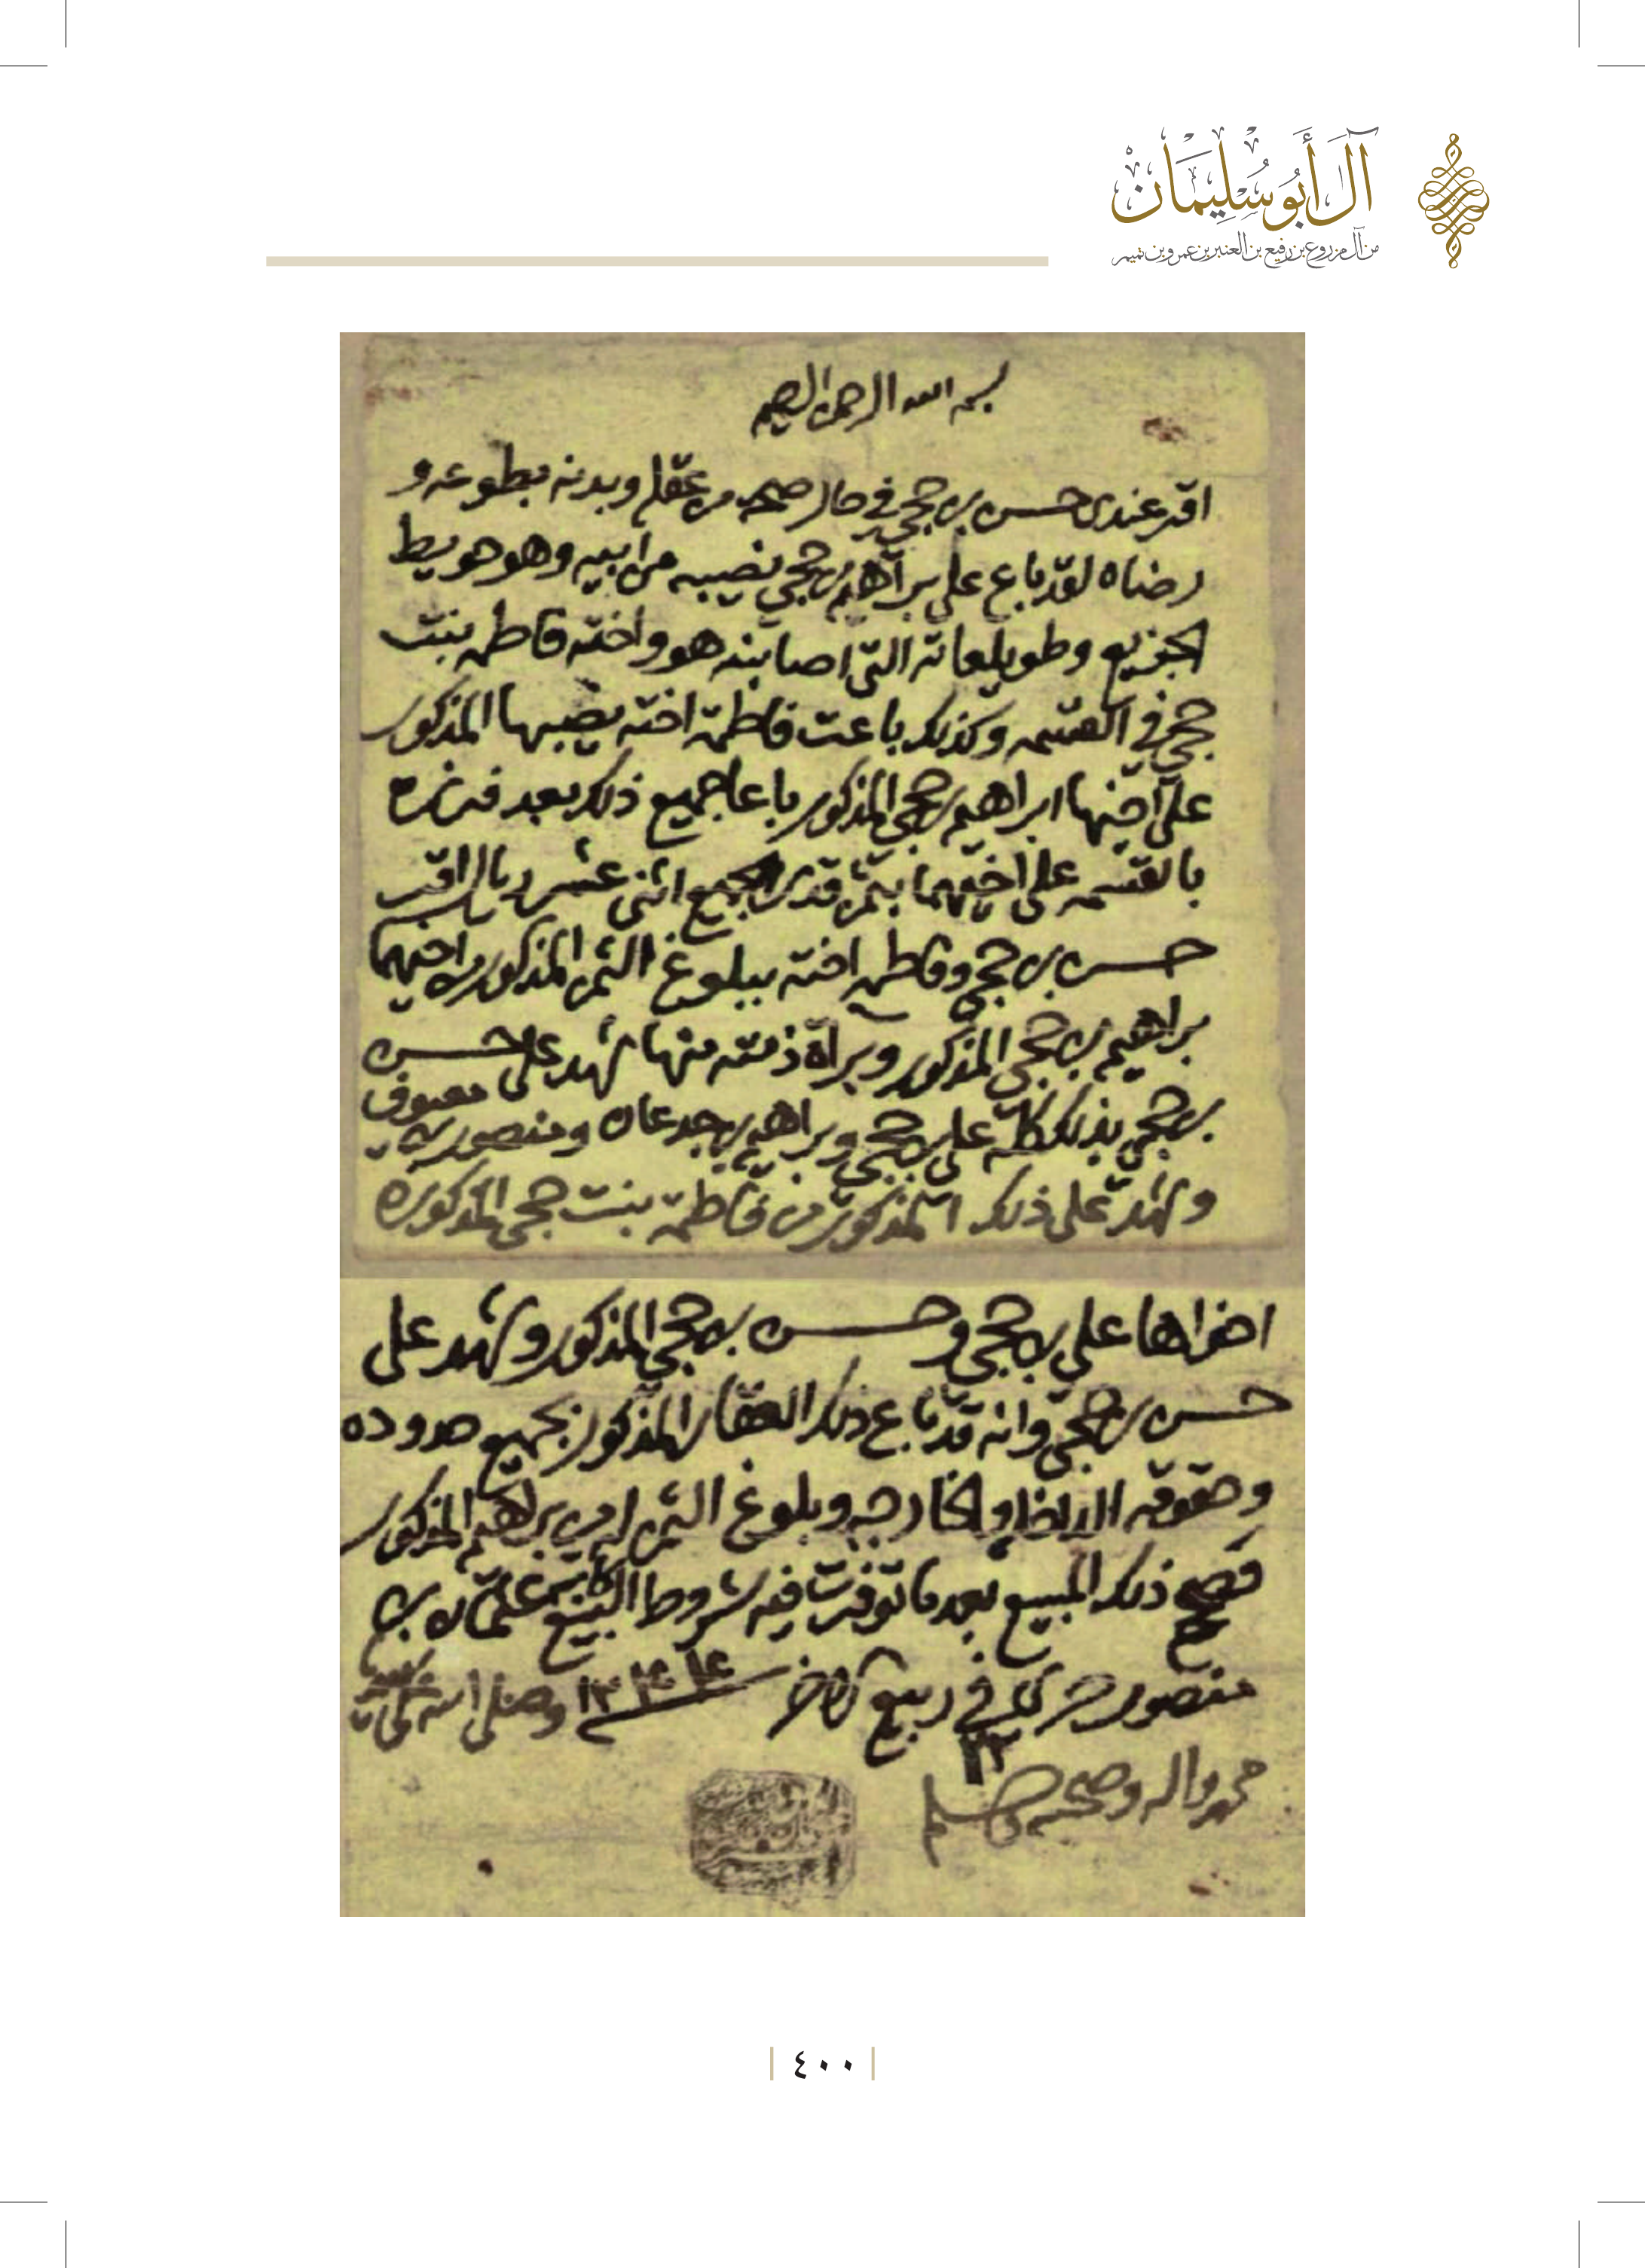 آل أبو سليمان
من آل مزروع بن رفيع بن العنبر بن عمرو بن تميم
بسم الله الرحمن الرحيم
اقر عندي حسن بن حجي في حال صحه من عقله وبدنه بطوعه و
رضاه لقد باع على براهيم بن حجي نصيبه من ابيه وهو حويط
وطويلعاته التي اصابته هو واخته فاطمه بنت
حجي في القسمه وكذلك باعت فاطمة اخته نصيبها المذكور
على اخيها ابراهيم بن حجي المذكور باعا جميع ذلك بعد فرزه
بالقسمه على اخيهما بثمن قدره اثني عشر ريال اقر
حسن بن حجي وفاطمه اخته ببلوغ الثمن المذكور من اخيهما
براهيم بن حجي المذكور وبرآة ذمته منها شهد على حسن
بن حجي بذلك كله علي بن حجي وبراهيم بن جدعان ومنصور بن
وشهد على ذلك المذكور من فاطمة بنت حجي المذكوره
اخواها علي بن حجي وحسن بن حجي المذكور وشهد على
حسن بن حجي وانه قد باع ذلك العقار المذكور بجميع حدوده
وحقوقه الداخله والخارجه وبلوغ الثمن له من براهيم المذكور
فصح ذلك المبيع بعد ما توفرت فيه شروط البيع كاتبه عثمان بن
منصور جرى في ربيع الاخر وصلى الله على
٢٢
محمد واله وصحبه وسلم
٤٠٠